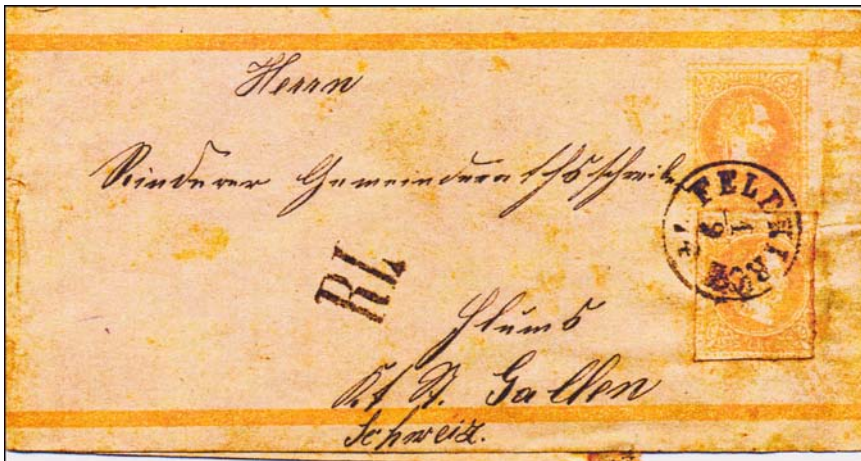 Herrn
Rinderer Gemeinderathsschreiber
FELDKIRCH
1
9
RL
Flums
Kt St. Gallen
Schweiz.